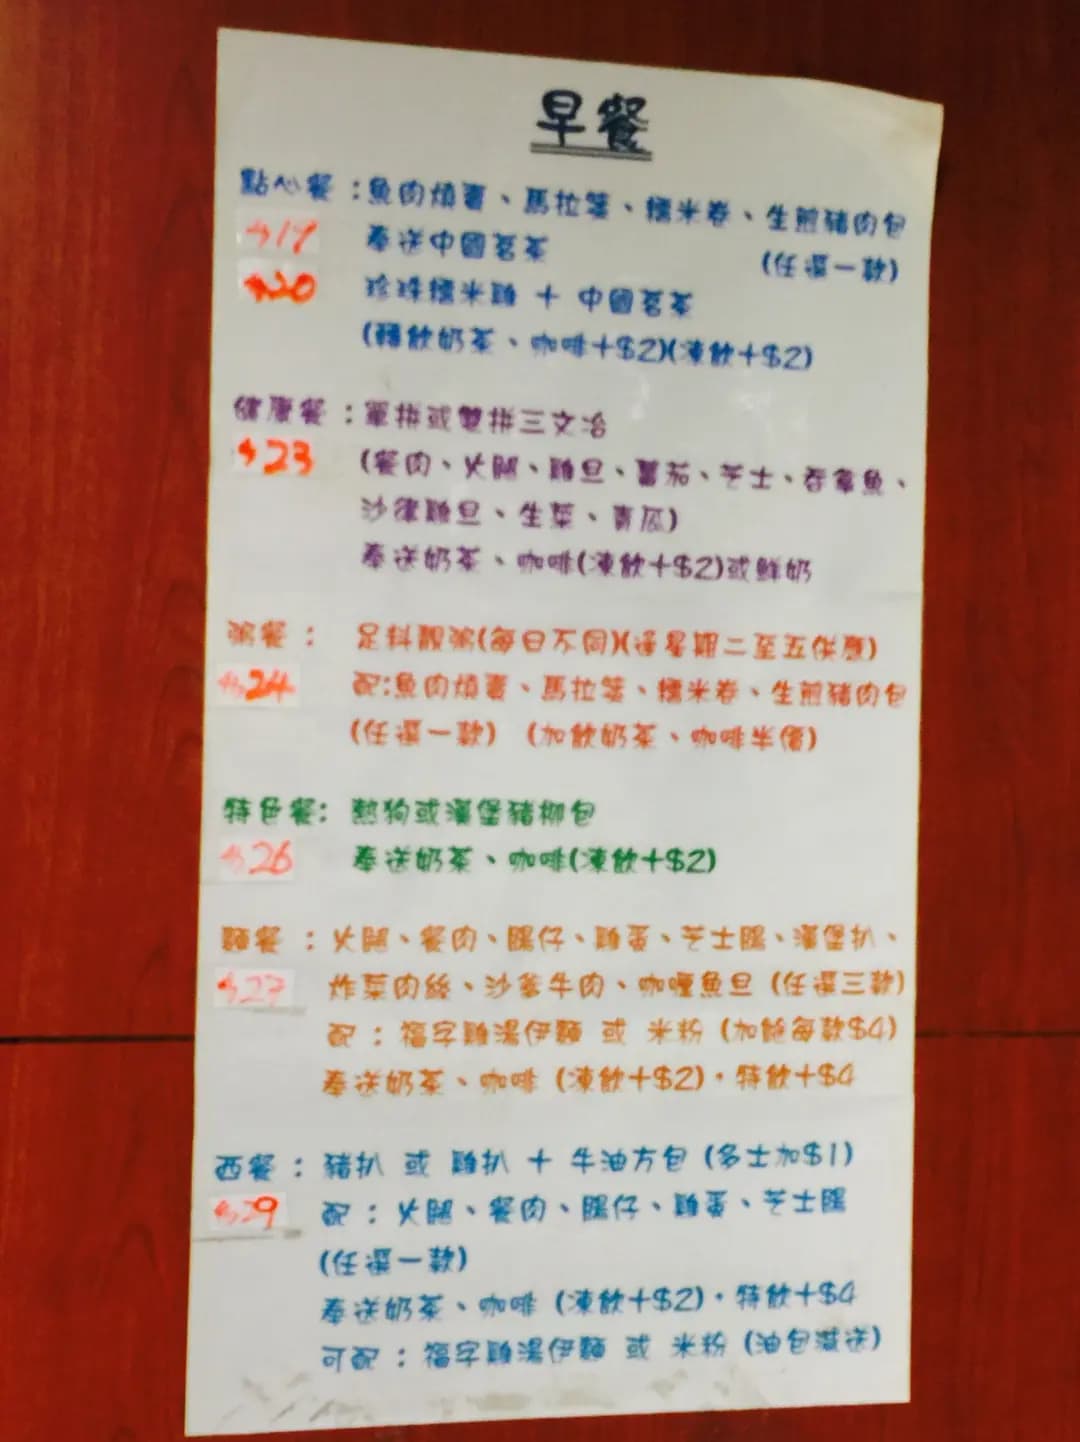 早餐
點心餐：魚肉燒賣、馬拉糕、糯米卷、生煎豬肉包
$19 奉送中國茗茶 (任選一款)
$20 珍珠糯米雞 + 中國茗茶
(轉飲奶茶、咖啡+$2)(凍飲+$2)
健康餐：單拼或雙拼三文治
$23 (餐肉、火腿、雞旦、蕃茄、芝士、吞拿魚、
沙律雞旦、生菜、青瓜)
奉送奶茶、咖啡(凍飲+$2)或鮮奶
粥餐： 足料靚粥(每日不同)(逢星期二至五供應)
$24 配:魚肉燒賣、馬拉糕、糯米卷、生煎豬肉包
(任選一款) (加飲奶茶、咖啡半價)
特色餐： 熱狗或漢堡豬柳包
$26 奉送奶茶、咖啡(凍飲+$2)
麵餐：火腿、餐肉、腸仔、雞蛋、芝士腸、漢堡扒、
$27 炸菜肉絲、沙爹牛肉、咖喱魚旦 (任選三款)
配：福字雞湯伊麵 或 米粉 (加餸每款$4)
奉送奶茶、咖啡 (凍飲+$2)，特飲+$4
西餐：豬扒 或 雞扒 + 牛油方包 (多士加$1)
$29 配：火腿、餐肉、腸仔、雞蛋、芝士腸
(任選一款)
奉送奶茶、咖啡 (凍飲+$2)，特飲+$4
可配：福字雞湯伊麵 或 米粉 (油包減送)